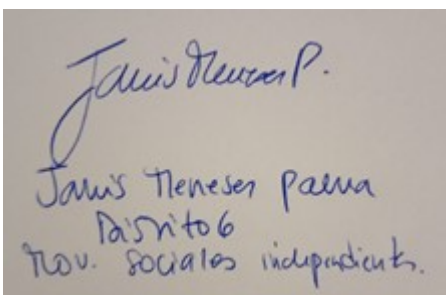 Janis Meneses P.
Janis Meneses Palma
Distrito 6
Mov. Sociales independientes.